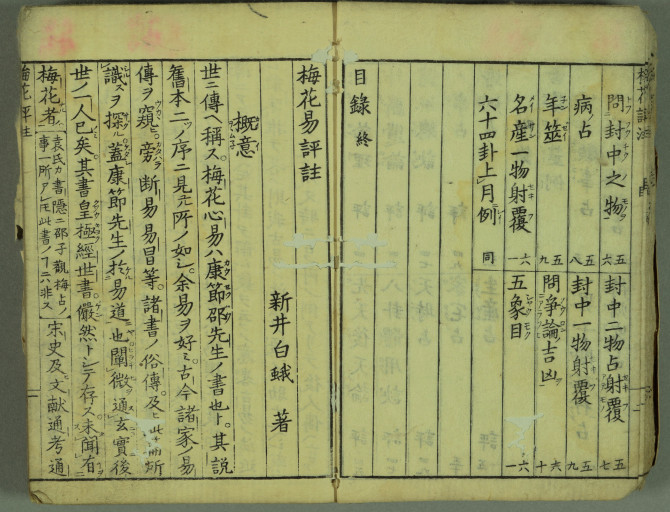 問封中之物 五六
封中二物占射覆 五七
病ノ占 五八
封中一物射覆 五九
年筮 五九
問争論吉凶 六十
名産一物射覆 六一
五象目 六一
六十四卦上ノ月例 同
目録 終
梅花易評註
新井白蛾 著
概意
世ニ傳ヘ稱ス梅花心易ハ康節邵先生ノ書也ト。其説
舊本二ノ序ニ見エ所ノ如シ。余易ヲ好ミ古今諸家ノ易
傳ヲ窺ヒ。旁 断易易冒等。諸書ノ俗傳。及ヒ此
識スヲ探ル 蓋康節先生ノ於易道ニ也闡微ヲ通玄實後
世ノ一人已矣。其書皇極經世書。儼然トシテ存ス。未聞有
梅花者ヲ 袁氏カ書隠ニ邵子觀梅占ノ
事一所アレ 此書ノ ニハ非ス
宋史及文献通考通